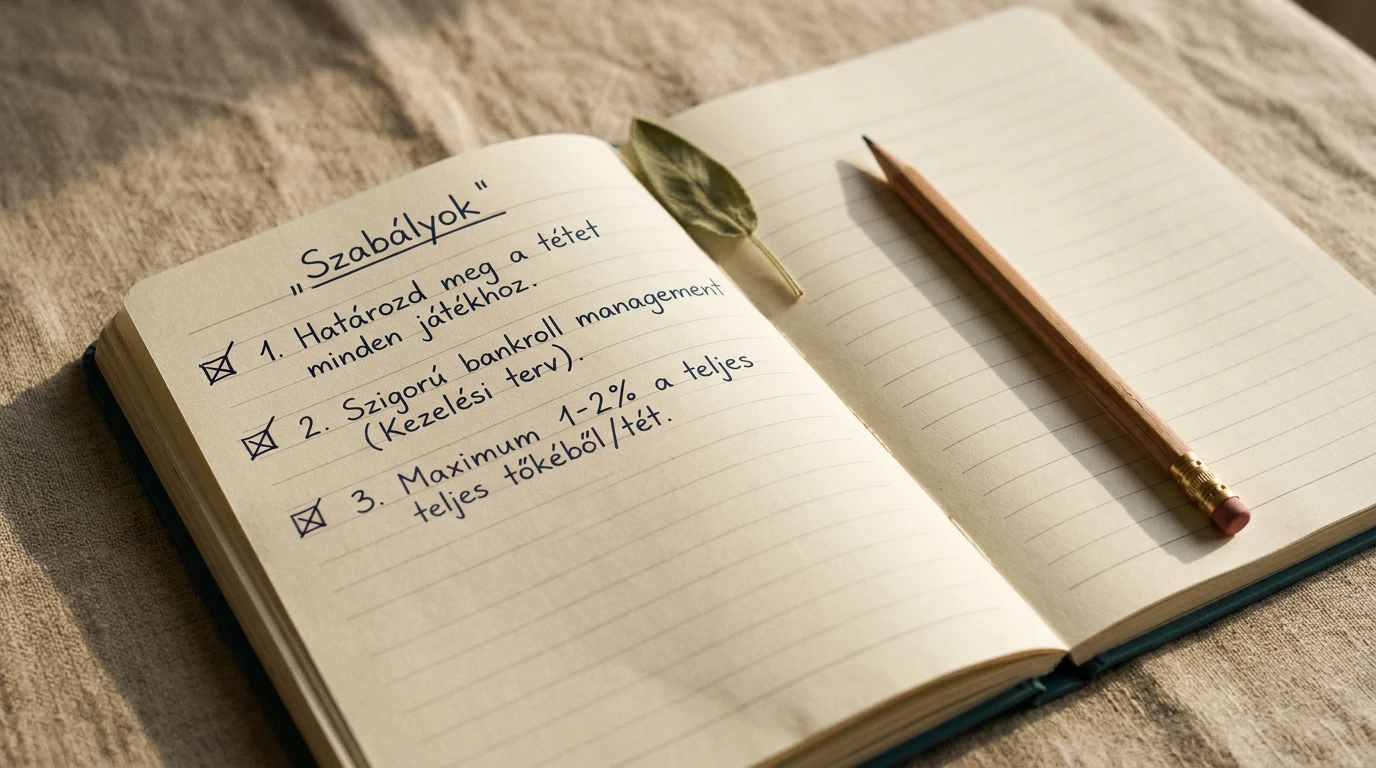 "Szabályok"
1. Határozd meg a tétet
minden játékhoz.
2. Szigorú bankroll management
(Kezelési terv).
3. Maximum 1-2% a teljes
teljes tőkéből/tét.